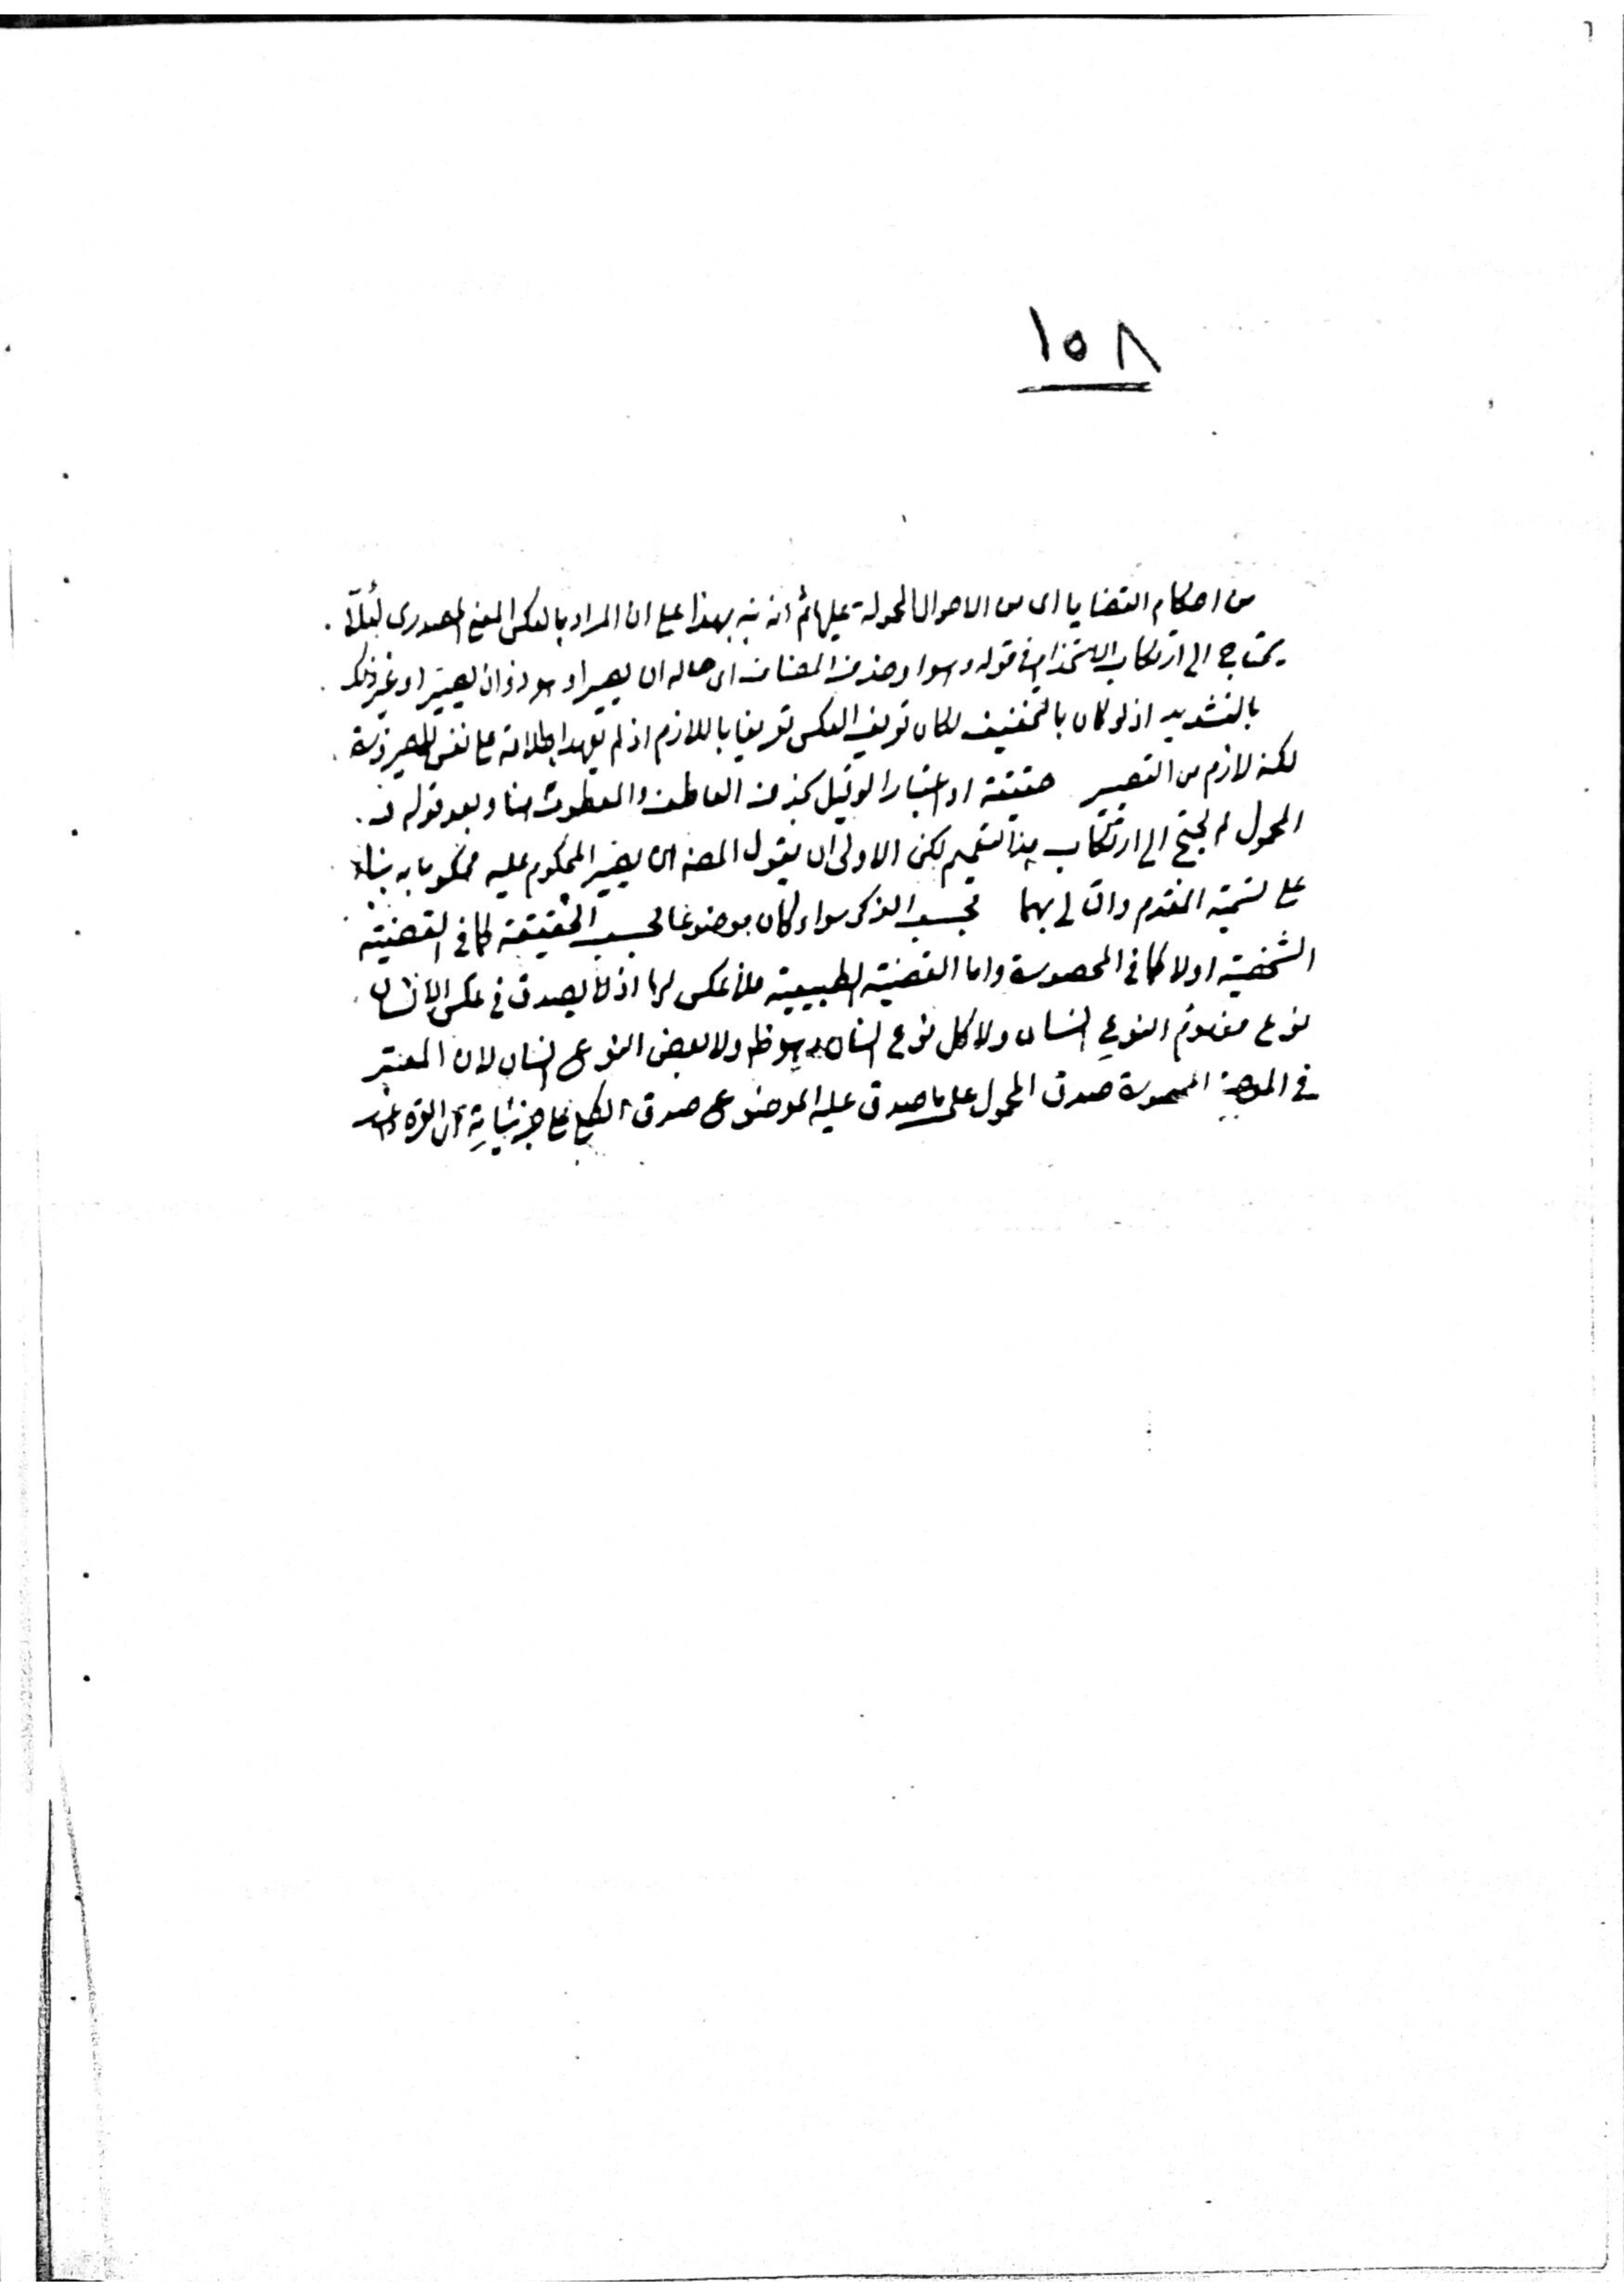 ١٥٨
من احكام القضايا اى من الاحوال المحمولة عليها ثم انه نبه بهذا على ان المراد بالعكس المعنى المصدرى لئلا
يحتاج الى ارتكاب الاستخدام فى قوله وهو او حذف المضاف اى حاله ان يصير او هو ذو ان يصير او غير ذلك
بالتشديد اذ لو كان بالتخفيف لكان تعريف العكس تعريفا باللازم اذ لم يعهد اطلاقه على نفس الصيرورة
لكنه لازم من التصيير حقيقة او اعتبارا لو قيل بحذف العاطف والمعطوف هنا وبعد قوله
المحمول لم يحتج الى ارتكاب هذا التعميم لكن الاولى ان يقول المص ان يصير المحكوم عليه محكوما به بناء
على تسمية المقدم والتالى بهما بحسب الذكر سواء كان موضوعا بحسب الحقيقة كما فى القضية
الشخصية اولا كما فى المحصورة واما القضية الطبيعية فلا عكس لها اذ لا يصدق فى عكس الانسان
نوع مفهوم النوع انسان ولا كل نوع انسان وهو ظ ولا بعض النوع انسان لان المعتبر
فى المحصورة صدق المحمول على ما صدق عليه الموضوع صدق الكلى على جزئياته